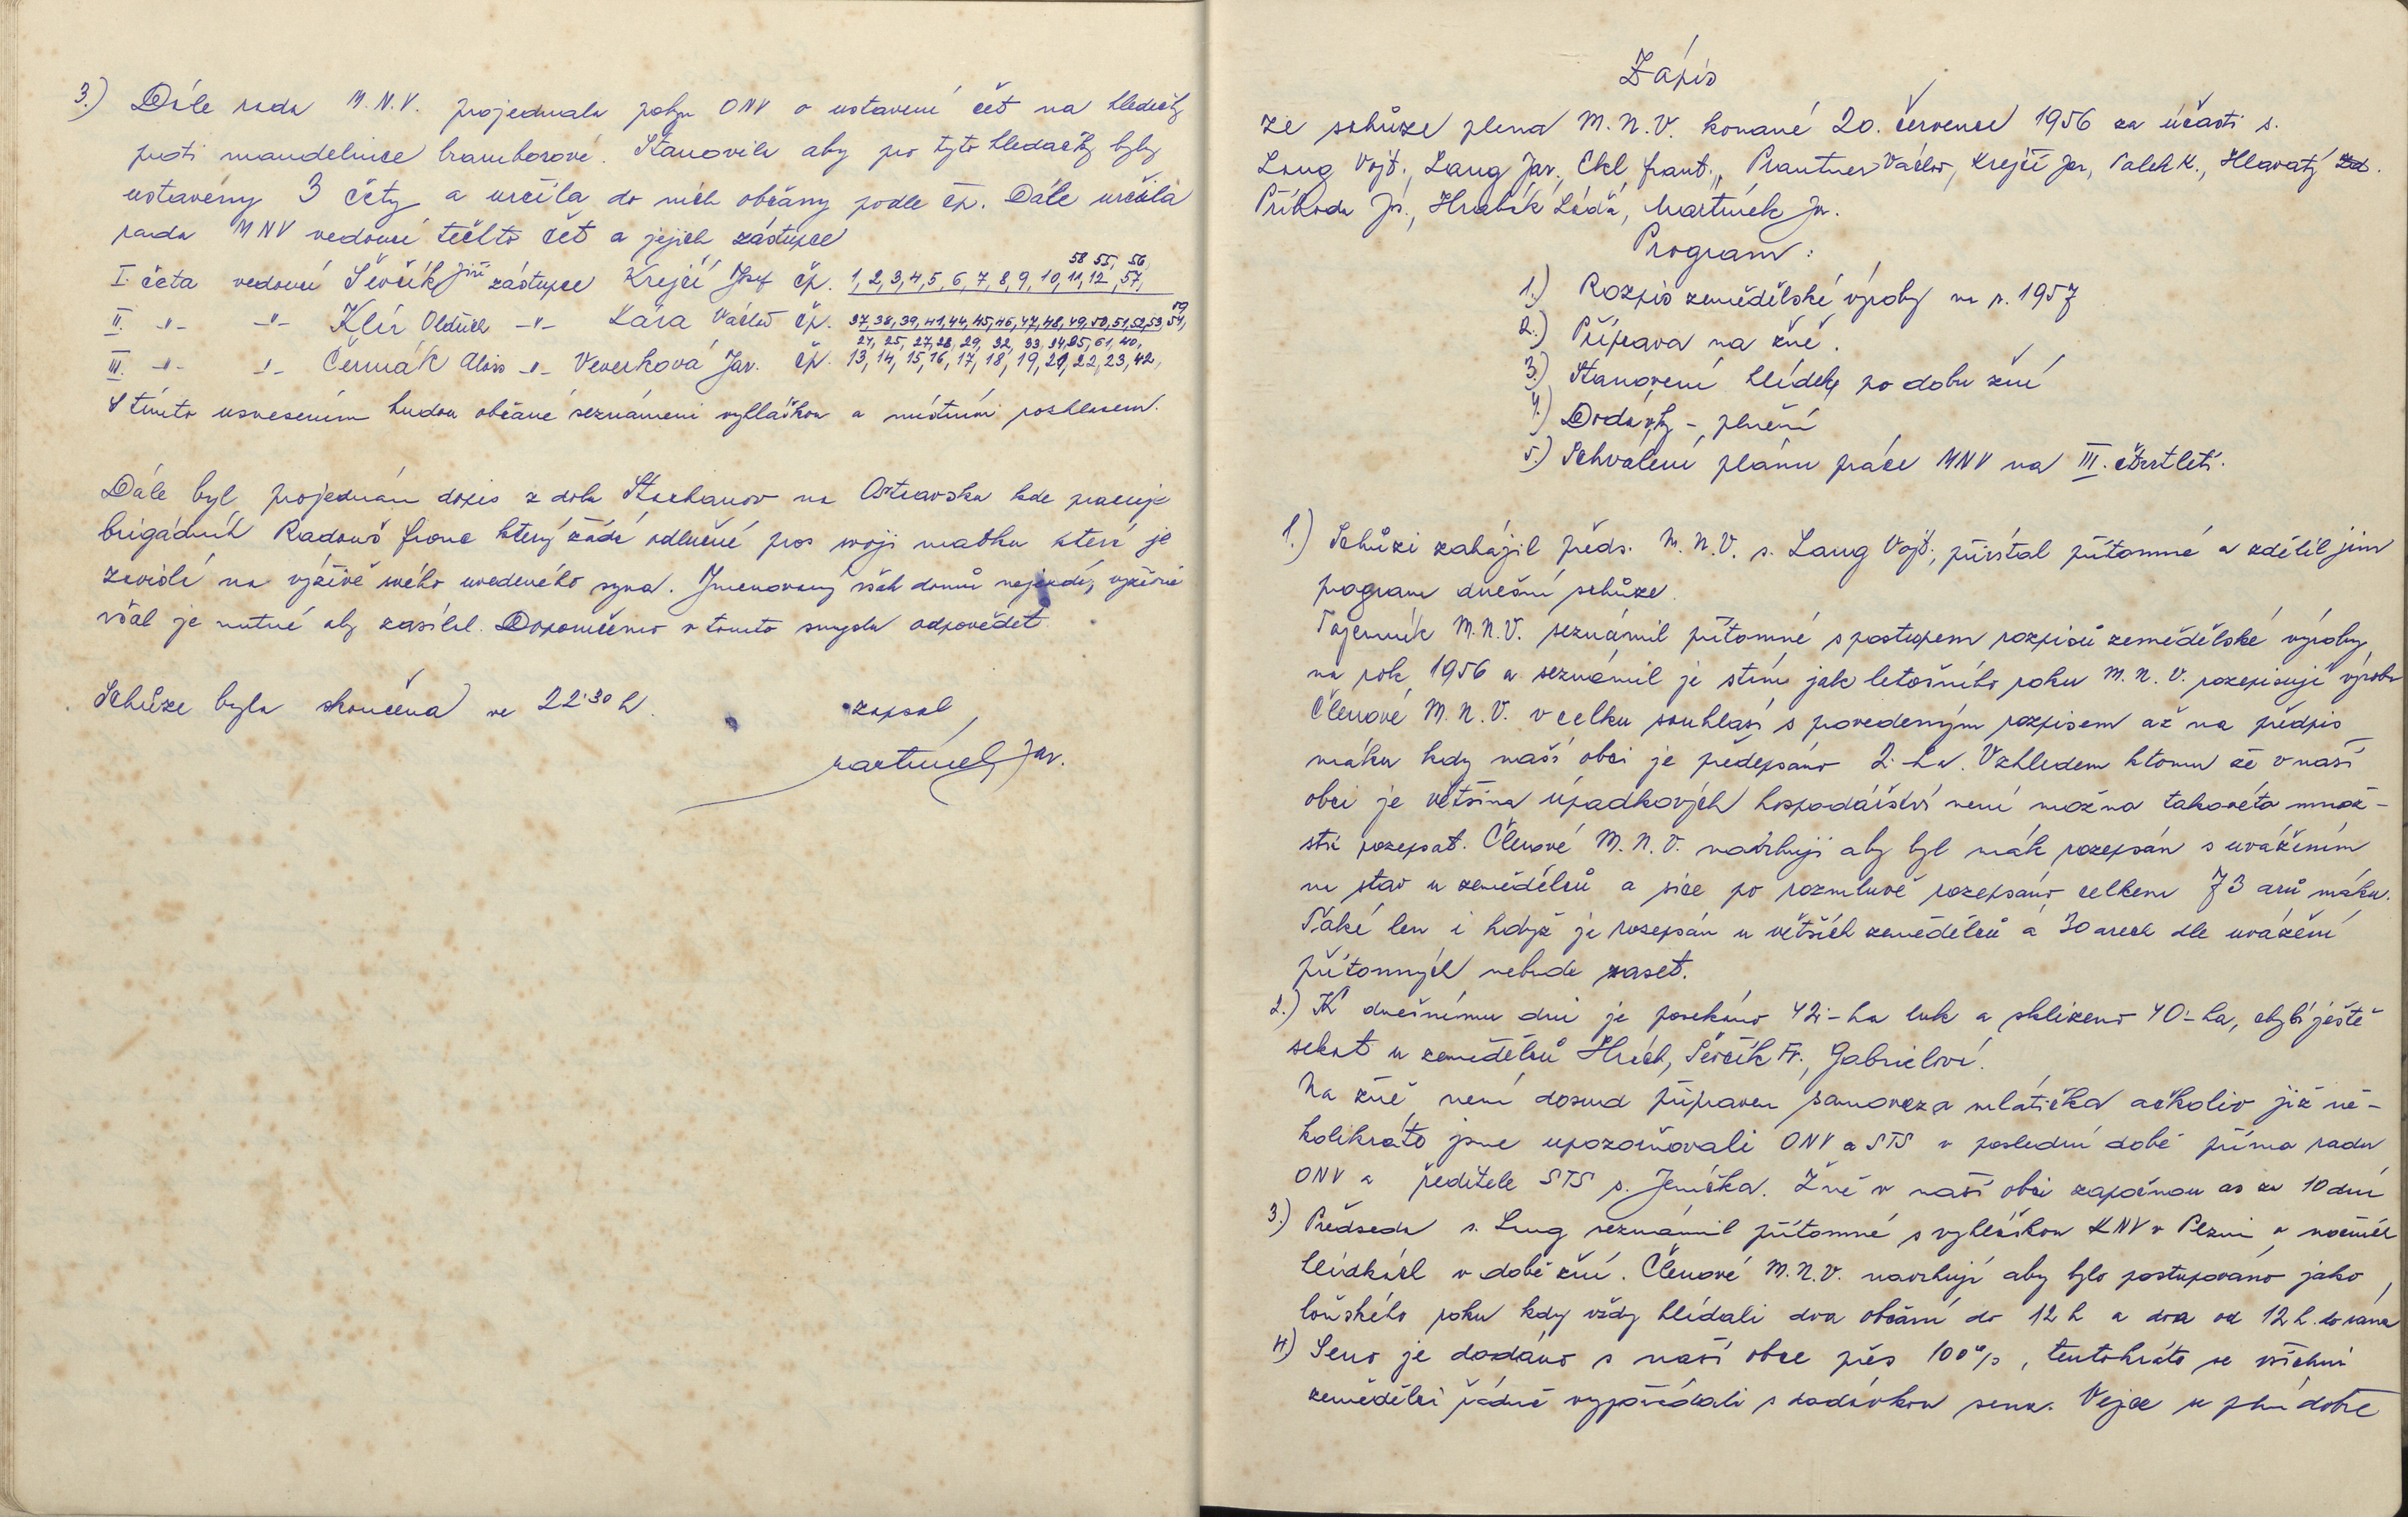 3.) Dále rada M.N.V. projednala pokyn ONV o ustavení čet na hledačky
proti mandelince bramborové. Stanovila aby pro tyto hledačky byly
ustaveny 3 čety a určila do nich občany podle čp. Dále určila
rada MNV vedoucí těchto čet a jejich zástupce
58 55, 56,
I. četa vedoucí Ševčík Jiří zástupce Krejčí Josef čp. 1, 2, 3, 4, 5, 6, 7, 8, 9, 10, 11, 12, 57,
59
II. -"- -"- Klír Oldřich -"- Lára Václav čp. 37, 38, 39, 41, 44, 45, 46, 47, 48, 49, 50, 51, 52, 53, 54,
24, 25, 27, 28, 29, 32, 33, 34, 35, 61, 40,
III. -"- -"- Čermák Alois -"- Veverková Jar. čp. 13, 14, 15, 16, 17, 18, 19, 20, 22, 23, 42,
S tímto usnesením budou občané seznámeni vyhláškou a místním rozhlasem.
Dále byl projednán dopis z dolu Stachanov na Ostravsku kde pracuje
brigádník Radouš Franc který žádá odlučné pro svoji matku která je
závislá na výživě svého uvedeného syna. Jmenovaný však domů nejezdí, výživné
však je nutné aby zasílal. Doporučeno v tomto smyslu odpovědět.
Schůze byla skončena ve 22.30 h. zapsal
Martínek Jar.
Zápis
ze schůze plena M.N.V. konané 20. července 1956 za účasti s.
Lang Vojt., Lang Jar., Ekl Frant., Prantner Václav, Krejčí Jar, Palek K., Hlavatý
Příhoda Jos., Hrabák Láďa, Martínek Jar.
Program:
1.) Rozpis zemědělské výroby na r. 1957
2.) Příprava na žně.
3.) Stanovení hlídek po dobu žní
4.) Dodávky - plnění
5.) Schválení plánu práce MNV na III. čtvrtletí.
1.) Schůzi zahájil předs. M.N.V. s. Lang Vojt., přivítal přítomné a zdělil jim
program dnešní schůze.
Tajemník M.N.V. seznámil přítomné s postupem rozpisů zemědělské výroby
na rok 1956 a seznámil je stím jak letošního roku M.N.V. rozepisuje výrobu
Členové M.N.V. v celku souhlasí s provedeným rozpisem až na předpis
máku kdy naší obci je předepsáno 2.-ha. Vzhledem ktomu že v naší
obci je většina úpadkových hospodářství není možna takovéto množ-
ství rozepsat. Členové M.N.V. navrhují aby byl mák rozepsán s uvážením
na stav u zemědělců a sice po rozmluvě rozepsáno celkem 73 arů máku.
Také len i když je rozepsán u větších zemědělců á 30 arech dle uvážení
přítomných nebude zaset.
2.) K dnešnímu dni je posekáno 42.-ha luk a sklizeno 40.-ha, chybí ještě
sekat u zemědělců Hrách, Ševčík Fr., Gabrielová.
Na žně není dosud připraven samovaz a mlátička ačkoliv již ně-
kolikráte jsme upozorňovali ONV a STS v poslední době přímo radu
ONV a ředitele STS s. Jeníčka. Žně v naší obci započnou as za 10 dní
3.) Předseda s. Lang seznámil přítomné s vyhláškou KNV v Plzni o nočních
hlídkách v době žní. Členové M.N.V. navrhují aby bylo postupováno jako
loňského roku kdy vždy hlídali dva občani do 12 h a dva od 12 h. do rána
4.) Seno je dodáno s naší obce přes 100%, tentokráte se všichni
zemědělci řádně vypořádali s dodávkou sena. Vejce se plní dobře